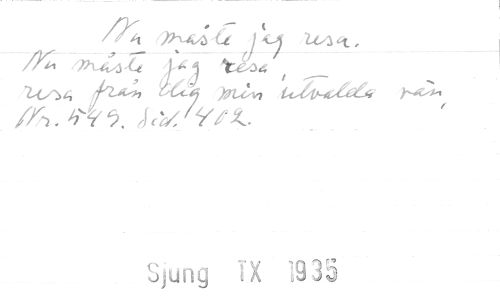 Nu måste jag resa.
Nu måste jag resa,
resa från dig min utvalda vän,
Nr. 549. Sid. 402.
Sjung TX 1935